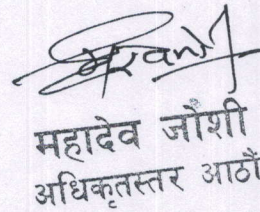 महादेव जोशी
अधिकृतस्तर आठौं